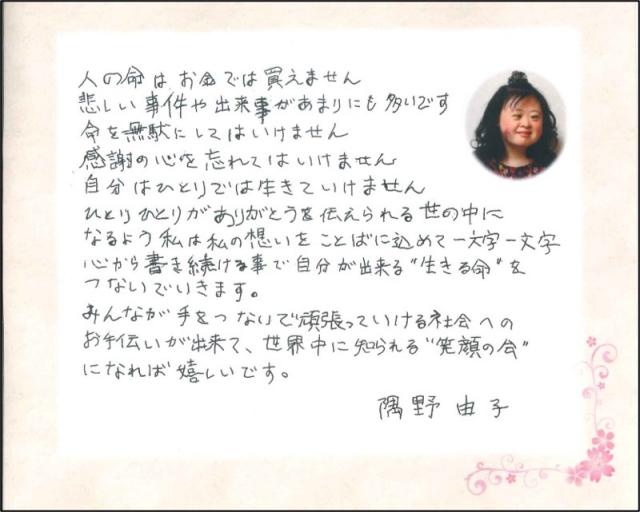 人の命は お金では買えません
悲しい事件や出来事があまりにも多いです
命を無駄にしてはいけません
感謝の心を忘れてはいけません
自分はひとりでは生きていけません
ひとりひとりがありがとうを伝えられる世の中に
なるよう私は私の想いをことばに込めて一文字一文字
心から書き続ける事で自分が出来る"生きる命"を
つないでいきます。
みんなが手をつないで頑張っていける社会への
お手伝いが出来て、世界中に知られる"笑顔の会"
になれば嬉しいです。
隅野 由子